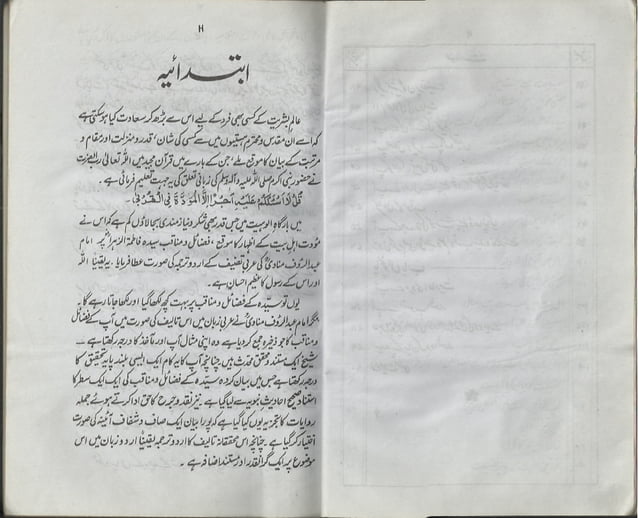 ۱۱
ابتدائیہ
عالمِ بشریت کے کسی بھی فرد کے لیے اس سے بڑھ کر سعادت کیا ہو سکتی ہے
کہ اسے ان مقدس و محترم ہستیوں میں سے کسی کی شان، قدر و منزلت اور مقام و
مرتبت کے بیان کا موقع ملے، جن کے بارے میں قرآن مجید میں اللہ تعالیٰ رب العزت
نے حضور نبی اکرم صلی اللہ علیہ وآلہ وسلم کی زبانی تعلق کی یہ جہت تعلیم فرمائی ہے۔
قُلْ لَا اَسْئَلُكُمْ عَلَيْهِ اَجْرًا اِلَّا الْمَوَدَّةَ فِي الْقُرْبٰى۔
میں بارگاہِ الوہیت میں جس قدر بھی شکر و نیاز مندی بجا لاؤں کم ہے کہ اس نے
مودت اہلِ بیت کے اظہار کا موقع، فضائل و مناقب سیدہ فاطمۃ الزہرا امام
عبدالرؤف مناوی کی عربی تصنیف کے اردو ترجمہ کی صورت عطا فرمایا۔ یہ یقیناً اللہ
اور اس کے رسول کا عظیم احسان ہے۔
یوں تو سیدہ کے فضائل و مناقب پر بہت کچھ لکھا گیا اور لکھا جاتا رہے گا۔
مگر امام عبدالرؤف مناوی نے عربی زبان میں اس تالیف کی صورت میں آپ کے فضائل
و مناقب کا جو ذخیرہ جمع کر دیا ہے وہ اپنی مثال آپ اور مآخذ کا درجہ رکھتا ہے۔
شیخ ایک مستند و محقق محدث ہیں چنانچہ آپ کا یہ کام ایک ایسی بلند پایہ تحقیق کا
درجہ رکھتا ہے جس میں بیان کردہ سیدہ کے فضائل و مناقب کی ایک ایک سطر کا
استناد صحیح احادیثِ نبویہ سے لیا گیا ہے نیز نقد و جرح کا حق ادا کرتے ہوئے جملہ
روایات کا تجزیہ یوں کیا گیا ہے کہ پورا بیان ایک صاف و شفاف آئینہ کی صورت
اختیار کر گیا ہے۔ چنانچہ اس محققانہ تالیف کا اردو ترجمہ یقیناً اردو زبان میں اس
موضوع پر ایک گرانقدر اور مستند اضافہ ہے۔